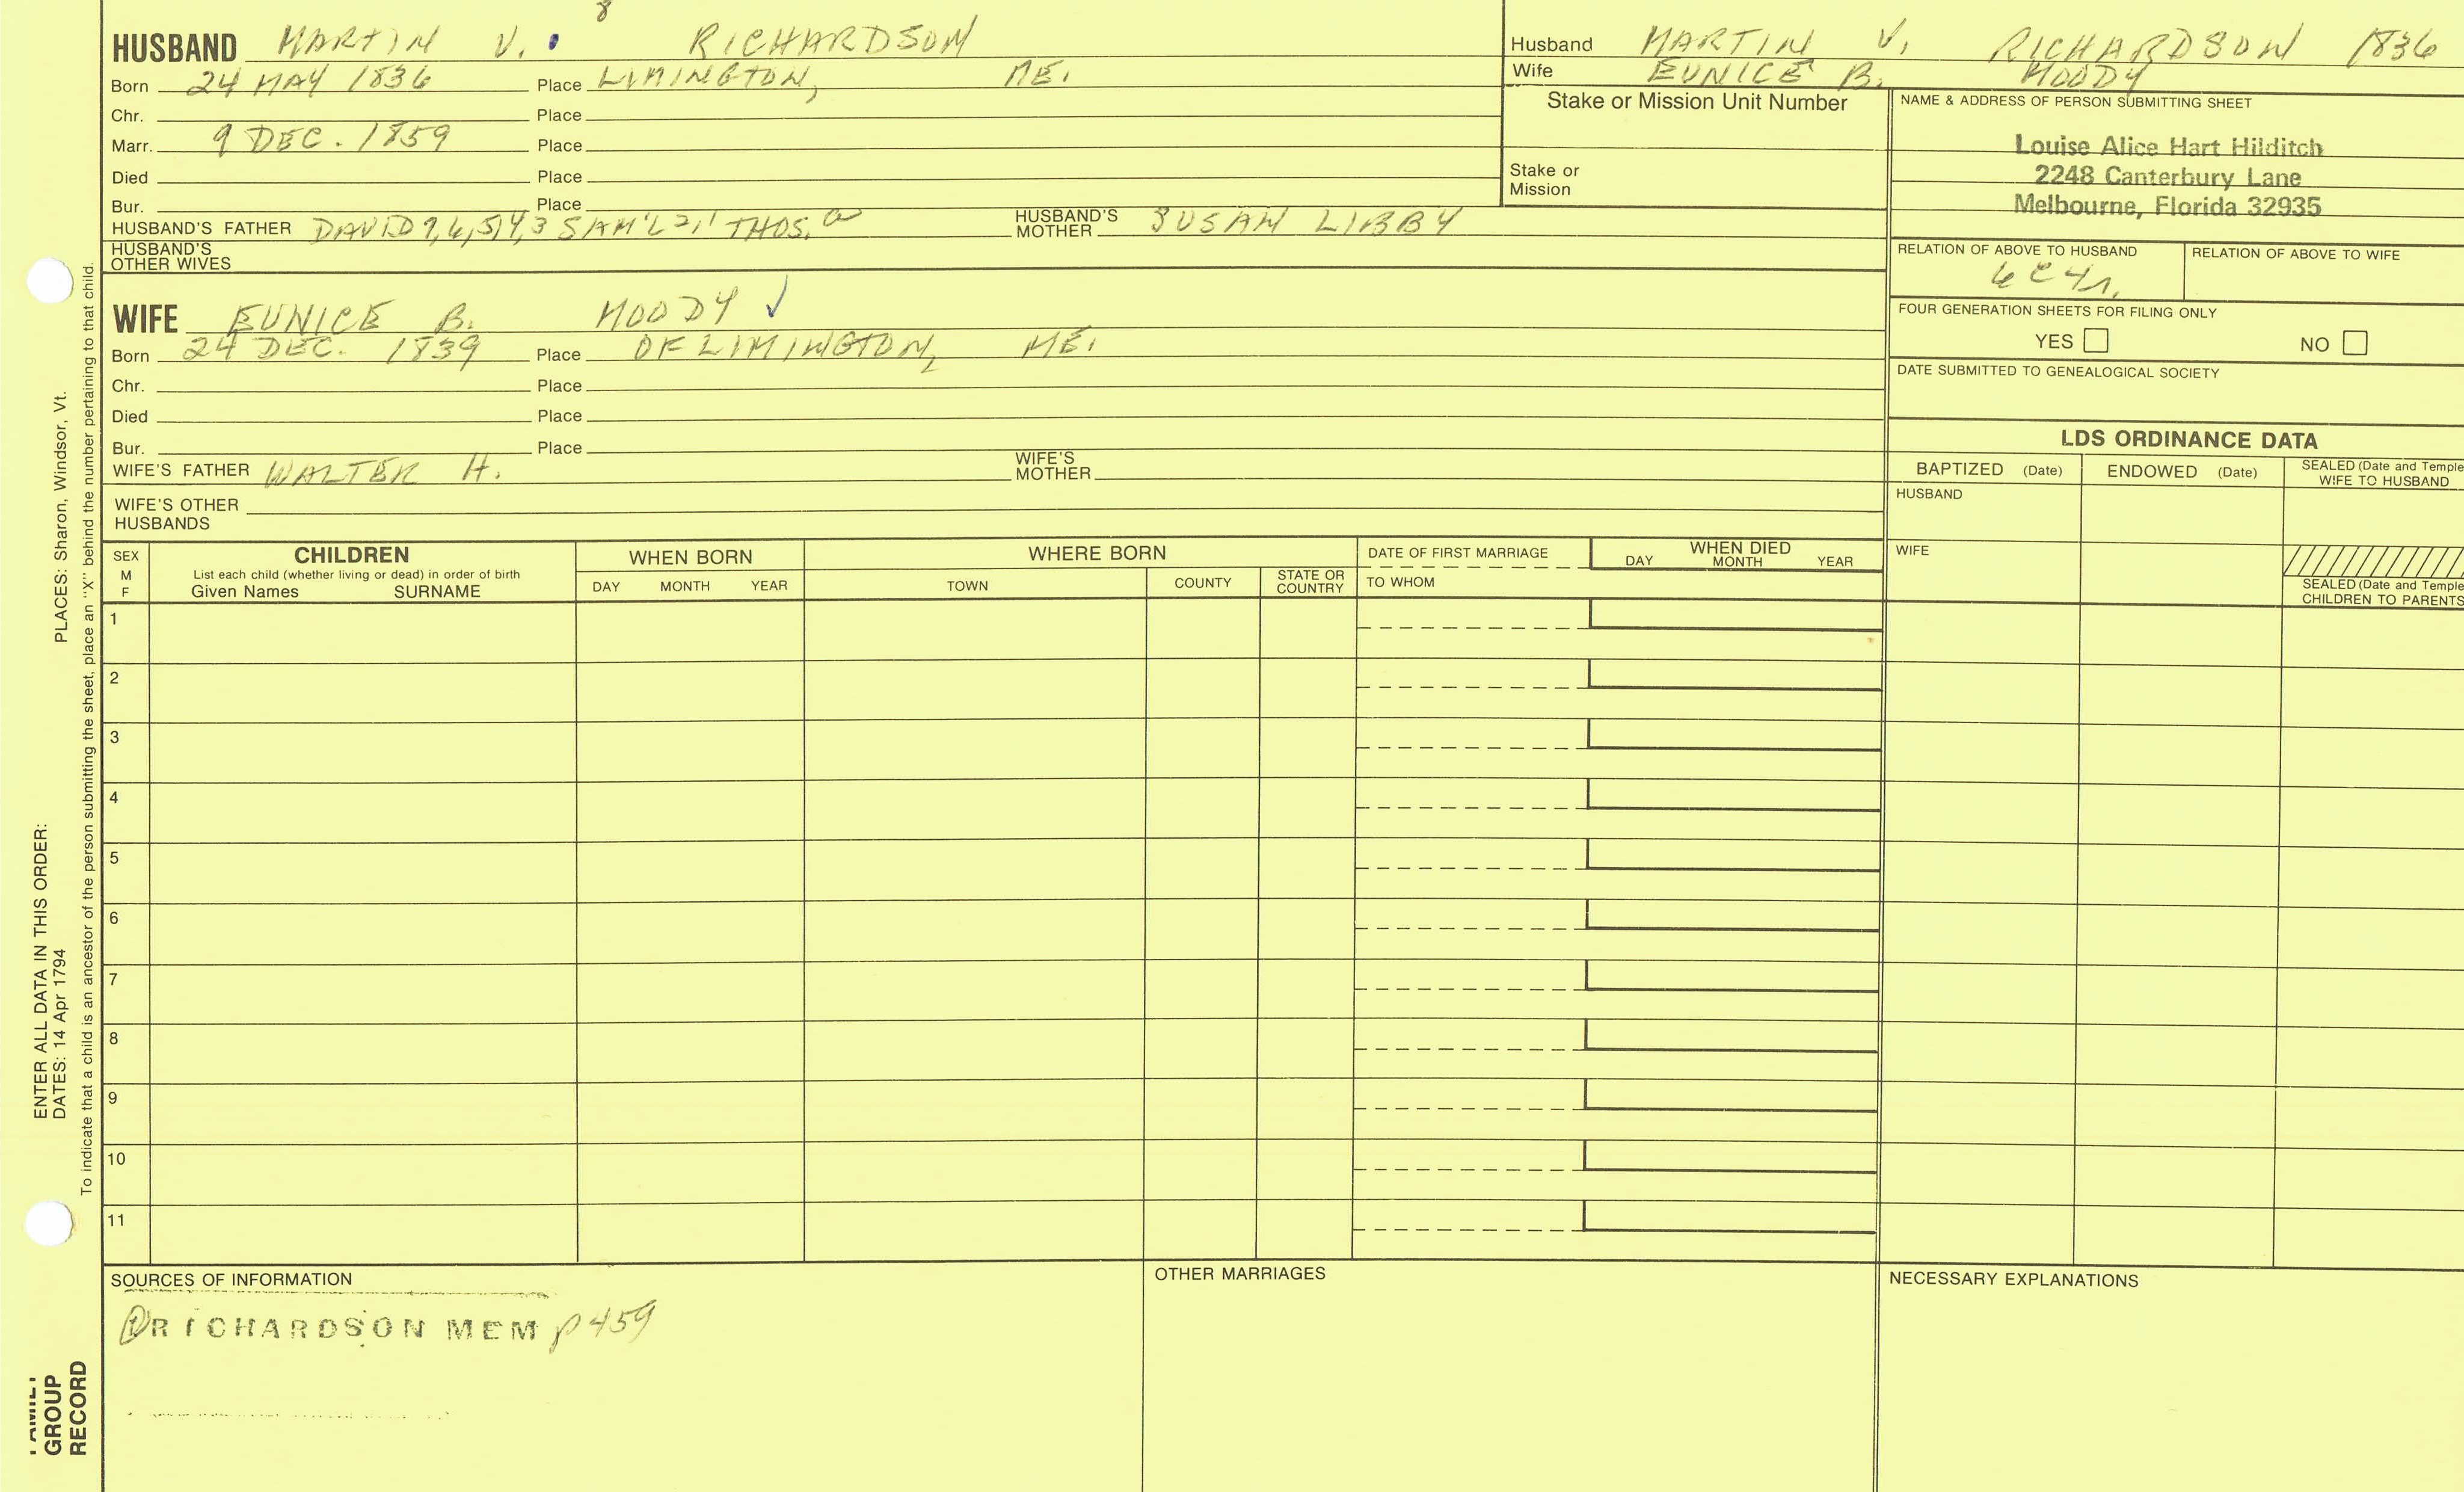 8
HUSBAND MARTIN V. RICHARDSON
Born 24 MAY 1836 Place LIMINGTON, ME.
Chr. Place
Marr. 9 DEC. 1859 Place
Died Place
Bur. Place
HUSBAND'S FATHER DAVID 7,6,5,4,3 SAM'L 2,1 THOS. a HUSBAND'S MOTHER SUSAN LIBBY
HUSBAND'S
OTHER WIVES
WIFE EUNICE B. MOODY ✓
Born 24 DEC. 1839 Place OF LIMINGTON, ME.
Chr. Place
Died Place
Bur. Place
WIFE'S FATHER WALTER H. WIFE'S MOTHER
WIFE'S OTHER
HUSBANDS
Husband MARTIN V. RICHARDSON 1836
Wife EUNICE B. MOODY
Stake or Mission Unit Number
Stake or
Mission
NAME & ADDRESS OF PERSON SUBMITTING SHEET
Louise Alice Hart Hilditch
2248 Canterbury Lane
Melbourne, Florida 32935
RELATION OF ABOVE TO HUSBAND RELATION OF ABOVE TO WIFE
6C4r.
FOUR GENERATION SHEETS FOR FILING ONLY
YES NO
DATE SUBMITTED TO GENEALOGICAL SOCIETY
LDS ORDINANCE DATA
BAPTIZED (Date) ENDOWED (Date) SEALED (Date and Temple
WIFE TO HUSBAND
HUSBAND
WIFE
SEALED (Date and Temple
CHILDREN TO PARENTS
SEX
M
F
CHILDREN
List each child (whether living or dead) in order of birth
Given Names SURNAME
WHEN BORN
DAY MONTH YEAR
WHERE BORN
TOWN COUNTY STATE OR COUNTRY
DATE OF FIRST MARRIAGE
TO WHOM
WHEN DIED
DAY MONTH YEAR
1
2
3
4
5
6
7
8
9
10
11
SOURCES OF INFORMATION
① RICHARDSON MEM p 459
OTHER MARRIAGES
NECESSARY EXPLANATIONS
ENTER ALL DATA IN THIS ORDER:
DATES: 14 Apr 1794 PLACES: Sharon, Windsor, Vt.
To indicate that a child is an ancestor of the person submitting the sheet, place an "X" behind the number pertaining to that child.
FAMILY
GROUP
RECORD